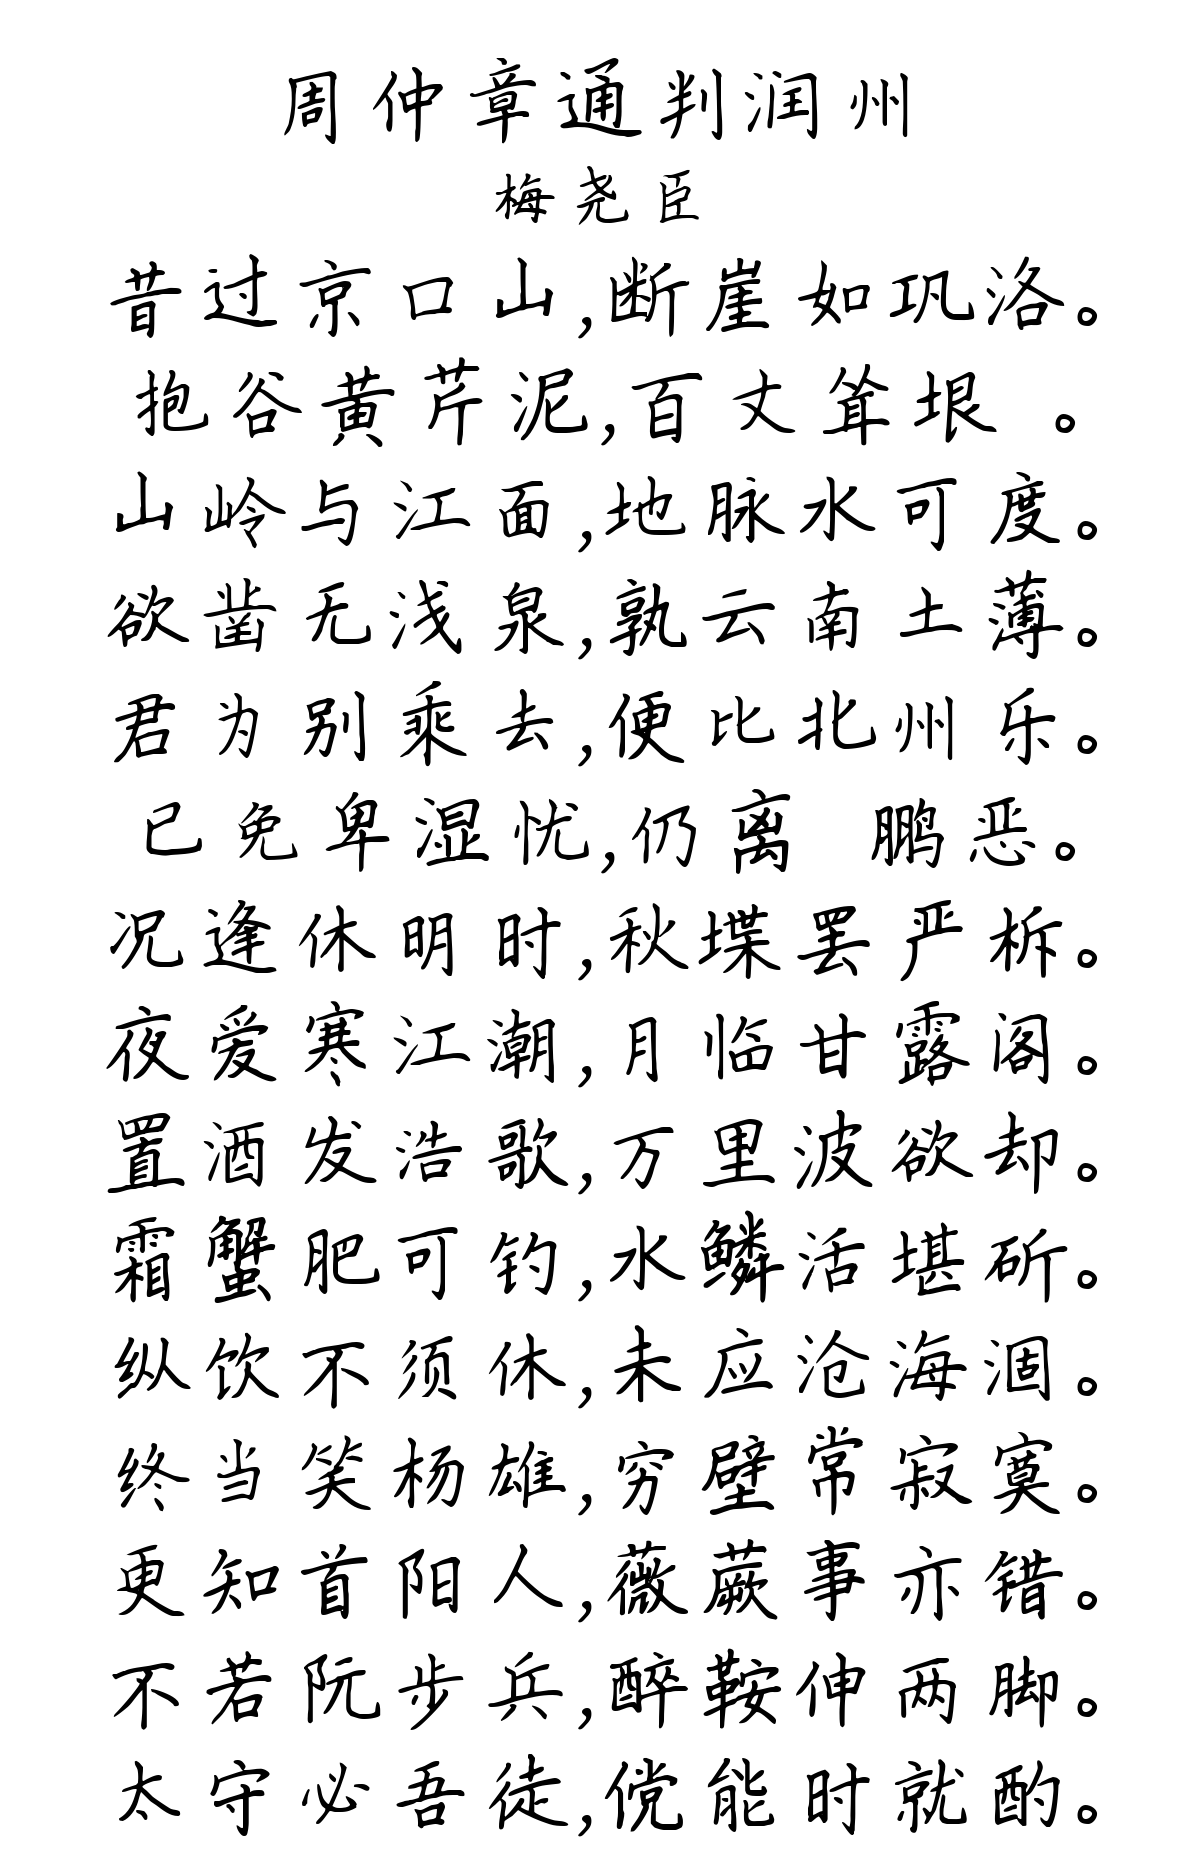 周仲章通判润州
梅尧臣
昔过京口山,断崖如巩洛。
抱谷黄芹泥,百丈耸垠 。
山岭与江面,地脉水可度。
欲凿无浅泉,孰云南土薄。
君为别乘去,便比北州乐。
已免卑湿忧,仍离 鹏恶。
况逢休明时,秋堞罢严柝。
夜爱寒江潮,月临甘露阁。
置酒发浩歌,万里波欲却。
霜蟹肥可钓,水鳞活堪斫。
纵饮不须休,未应沧海涸。
终当笑杨雄,穷壁常寂寞。
更知首阳人,薇蕨事亦错。
不若阮步兵,醉鞍伸两脚。
太守必吾徒,傥能时就酌。